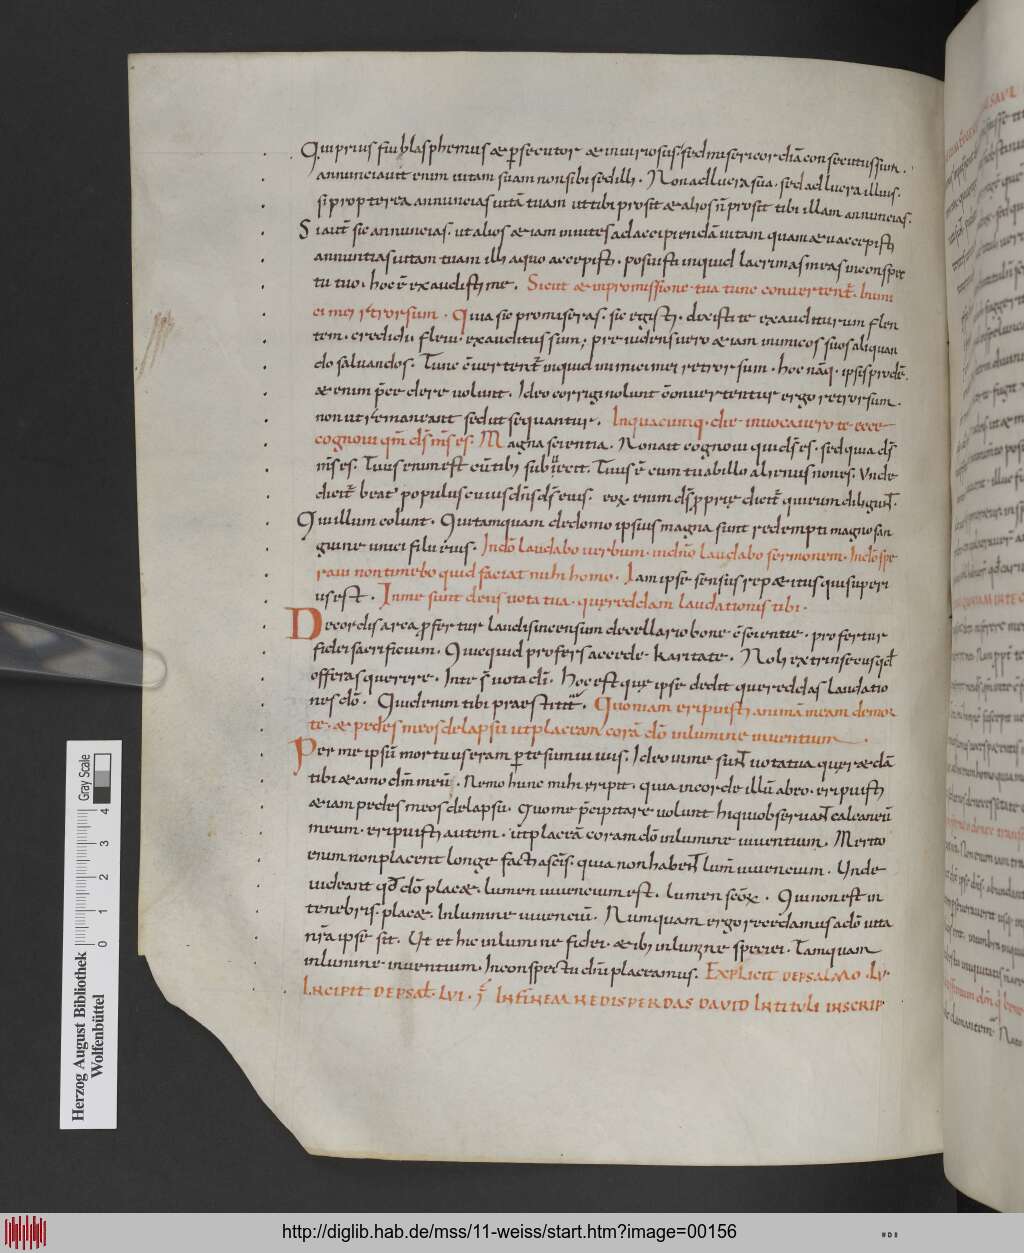 Qui prius fui blasphemus & p̄secutor & iniuriosus sed misericordiā consecutus sum.
annunciauit enim uitam suam non sibi sed illi. Non ad lucra sua. sed ad lucra illius.
si propterea annuncias uitā tuam ut tibi prosit & alios n̄ prosit tibi illam annuncias.
Si aut̄ sic annuncias. ut alios &iam inuites ad accipiendā uitam quam & tu accepisti
annuntias uitam tuam illi a quo accepisti. posuisti inquid lacrimas meas in conspec
tu tuo. hoc ē exaudisti me. Sicut & in promissione tua tunc conuertent̄. inimi
ci mei retrorsum. Quia sic promiseras. sic egisti. dixisti te exauditurum flen
tem. credidi. fleui. exauditus sum; preuidens uero &iam inimicos suos aliquan
do saluandos. Tunc c̄uertent̄ inquid inimici mei retrorsum. hoc nāq. ipsis prodē.
& enim p̄cedere uolunt. Ideo corrigi nolunt c̄onuertentur ergo retrorsum.
non ut remaneant sed ut sequantur. In quacumq. die inuocauero te ecce
cognoui qm̄ d̄s m̄s es. Magna scientia. Non ait cognoui qui d̄s es. sed quia d̄s
m̄s es. Tuus enim est cū tibi subuenit. Tuus ē cum tu ab illo alienus non es. Unde
dicit̄ beat' populus cuius dn̄s d̄s eius. eox enim d̄s p̄prie dicit̄ qui eum diligunt.
Qui illum colunt. Qui tamquam de domo ipsius magna sunt redempti magno san
guine unici filii eius. In dō laudabo uerbum. in dn̄o laudabo sermonem. In dō spe
raui non timebo quid faciat mihi homo. Iam ipse sensus rep&itus qui superi
us est. In me sunt deus uota tua. que reddam laudationis tibi.
De cordis arca p̄fertur laudis incensum de cellario bone c̄scientie. profertur
fidei sacrificium. Quicquid profers accede karitate. Noli extrinsecus qd
offeras querere. In te s̄ uota dī. Hoc est quę ipse dedit que reddas laudatio
nes dō. Quid enim tibi praestitit. Quoniam eripuisti animā meam de mor
te. & pedes meos de lapsu ut placeam corā dō in lumine uiuentium.
Per me ipsū mortuus eram p̄ te sum uiuus. Ideo in me sunt uota tua quę r&dā
tibi & amo dm̄ meū. Nemo hunc mihi eripit. quia in corde illū abeo. eripuisti
&iam pedes meos de lapsu. Quo me p̄cipitare uolunt hi qui obseruant calcaneū
meum. eripuisti autem. ut placeā coram dō in lumine uiuentium. Merito
enim non placent longe facti a scīs. quia non habent lum̄ uiuencium. Unde
uideant qd dō plac&. lumen uiuencium est. lumen scōx. Qui non est in
tenebris. plac&. In lumine uiuenciū. Numquam ergo recedamus a dō uita
nr̄a ipse sit. Ut et hic in lumine fidei. & ibi in lumine speciei. Tamquam
in lumine uiuentium. In conspectu dn̄i placeamus. EXPLICIT DE PSALMO. LV.
INCIPIT DE PSAL̄. LVI. IN FINEM NE DISPERDAS DAVID IN TITULI INSCRIP
Herzog August Bibliothek
Wolfenbüttel
Gray Scale
0 1 2 3 4
http://diglib.hab.de/mss/11-weiss/start.htm?image=00156